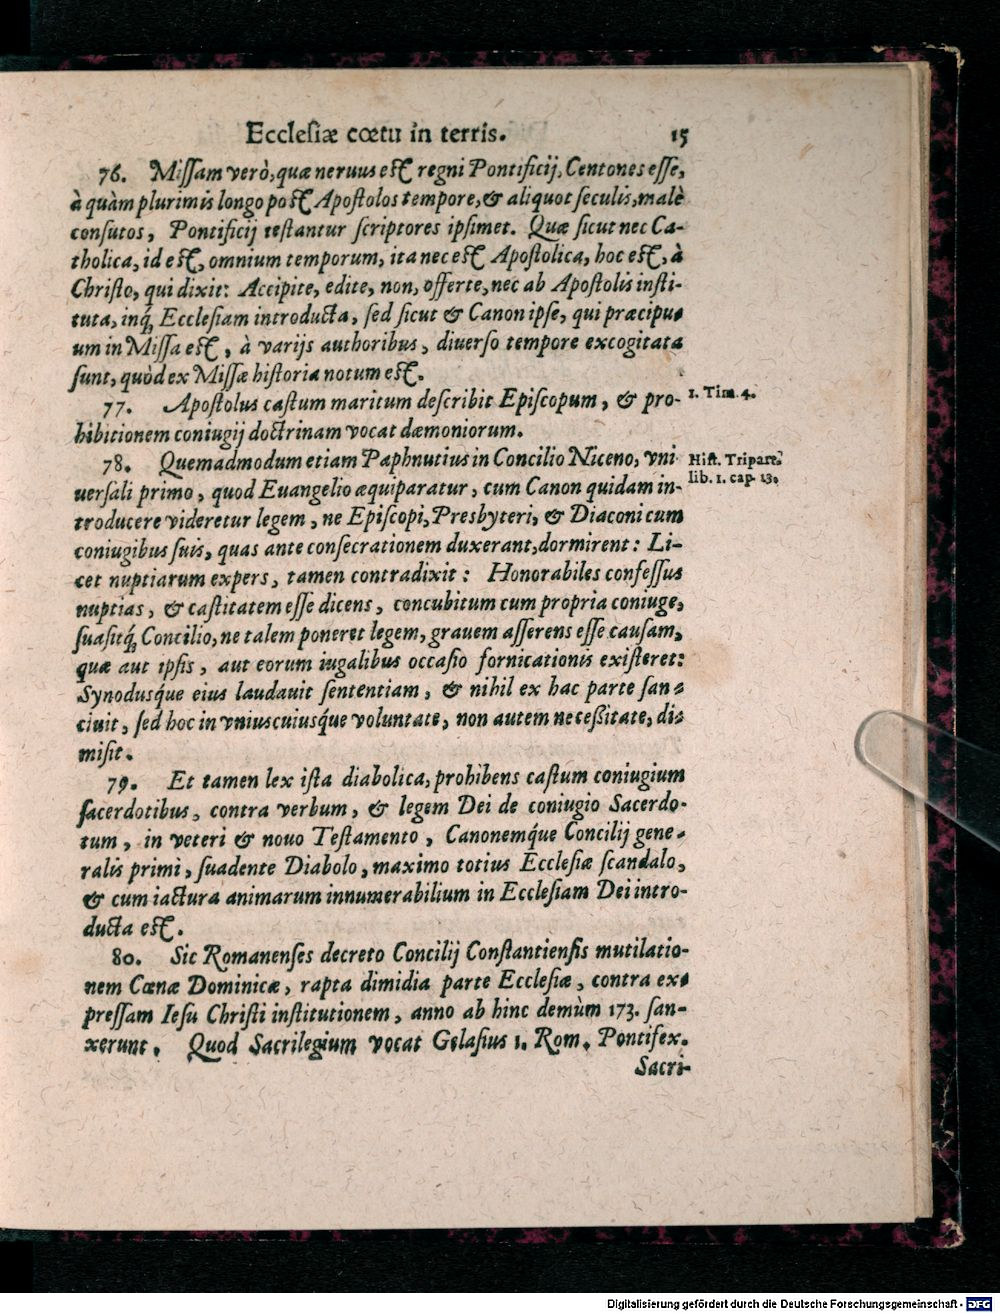 Ecclesiæ cœtu in terris. 15
76. Missam verò, quæ neruus est regni Pontificij, Centones esse,
à quàm plurimis longo post Apostolos tempore, & aliquot seculis, malè
consutos, Pontificij testantur scriptores ipsimet. Quæ sicut nec Ca-
tholica, id est, omnium temporum, ita nec est Apostolica, hoc est, à
Christo, qui dixit: Accipite, edite, non, offerte, nec ab Apostolis insti-
tuta, inq́ Ecclesiam introducta, sed sicut & Canon ipse, qui præcipu-
um in Missa est, à varijs authoribus, diuerso tempore excogitata
sunt, quòd ex Missæ historia notum est.
77. Apostolus castum maritum describit Episcopum, & pro-
1. Tim. 4.
hibitionem coniugij doctrinam vocat dæmoniorum.
78. Quemadmodum etiam Paphnutius in Concilio Niceno, vni
Hist. Tripart.
uersali primo, quod Euangelio æquiparatur, cum Canon quidam in-
lib. 1. cap. 13.
troducere videretur legem, ne Episcopi, Presbyteri, & Diaconi cum
coniugibus suis, quas ante consecrationem duxerant, dormirent: Li-
cet nuptiarum expers, tamen contradixit: Honorabiles confessus
nuptias, & castitatem esse dicens, concubitum cum propria coniuge,
suasitq́ Concilio, ne talem poneret legem, grauem asserens esse causam,
quæ aut ipsis, aut eorum iugalibus occasio fornicationis existeret:
Synodusq́ue eius laudauit sententiam, & nihil ex hac parte san-
ciuit, sed hoc in vniuscuiusq́ue voluntate, non autem necessitate, di-
misit.
79. Et tamen lex ista diabolica, prohibens castum coniugium
sacerdotibus, contra verbum, & legem Dei de coniugio Sacerdo-
tum, in veteri & nouo Testamento, Canonemq́ue Concilij gene-
ralis primi, suadente Diabolo, maximo totius Ecclesiæ scandalo,
& cum iactura animarum innumerabilium in Ecclesiam Dei intro-
ducta est.
80. Sic Romanenses decreto Concilij Constantiensis mutilatio-
nem Cœnæ Dominicæ, rapta dimidia parte Ecclesiæ, contra ex-
pressam Iesu Christi institutionem, anno ab hinc demùm 173. san-
xerunt. Quod Sacrilegium vocat Gelasius 1. Rom. Pontifex.
Sacri-
Digitalisierung gefördert durch die Deutsche Forschungsgemeinschaft - DFG